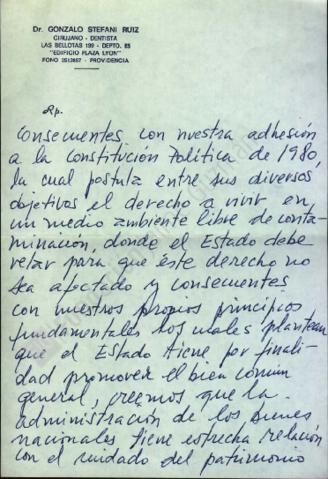 Dr. GONZALO STEFANI RUIZ
CIRUJANO - DENTISTA
LAS BELLOTAS 199 - DEPTO. 85
"EDIFICIO PLAZA LYON"
FONO 2512857 - PROVIDENCIA
Rp.
Consecuentes con nuestra adhesión
a la Constitución Política de 1980,
la cual postula entre sus diversos
objetivos el derecho a vivir en
un medio ambiente libre de conta-
minación, donde el Estado debe
velar para que éste derecho no
sea afectado y consecuentes
con nuestros propios principios
fundamentales los cuales plantean
que el Estado tiene por finali-
dad promover el bien común
general, creemos que la
administración de los bienes
nacionales tiene estrecha relación
con el cuidado del patrimonio